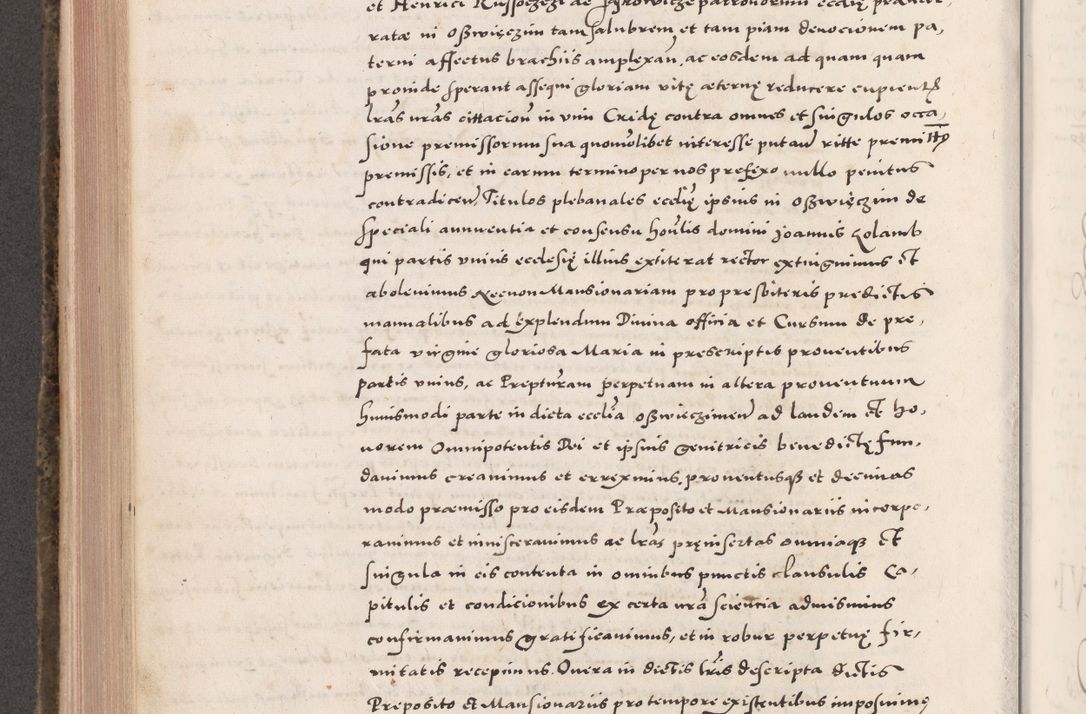 et Henrici Russoczszi de Pyrowicze patronorum ecclię prænar,
ratæ in Oßwięczim tam salubrem et tam piam devocionem pa,
terni affectus brachiis amplexan̄, ac eosdem ad quam quam
proinde sperant assequi gloriam vitę æternę reducere cupientes
lr̄as nr̄as cittacioñ in vim Cridę contra omnes et singulos occa,
sione premissorum sua quomolibet interesse putan̄ ritte premitti
premissis, et in earum termino per nos prefixo nullo penitus
contradicen̄, Titulos plebanales ecclię ipsius in Oßwięczim de
speciali annuentia et consensu hon̄lis domini Joannis Rolamb
qui partis unius ecclesię illius extiterat rector extinguimus et
abolevimus Necnon Mansionariam pro presbiteris predictis
manualibus ad explendum Divina officia et Cursum de pre,
fata virgine gloriosa Maria in prescriptis proventibus
partis unius, ac Preptur̄am perpetuam in altera proventuum
huiusmodi parte in dicta ecclīa Oßwieczimen̄ ad laudem et ho,
norem Omnipotentis Dei et ipsius genitricis benedictę fun,
davimus creavimus et erreximus, proventusq; et decimas
modo præmisso pro eisdem Præposito et Mansionariis incorpo,
ravimus et inviscеravimus ac lr̄as pręinsertas omniaq; et
singula in eis contenta in omnibus punctis clausulis Ca,
pitulis et condicionibus ex certa nr̄a sciencia admisimus
confirmavimus gratificavimus, et in robur perpetuę fir,
mitatis recepimus. Onera in dictis lr̄is descripta dictis
Preposito et Mansionariis pro tempore existentibus imposuimus